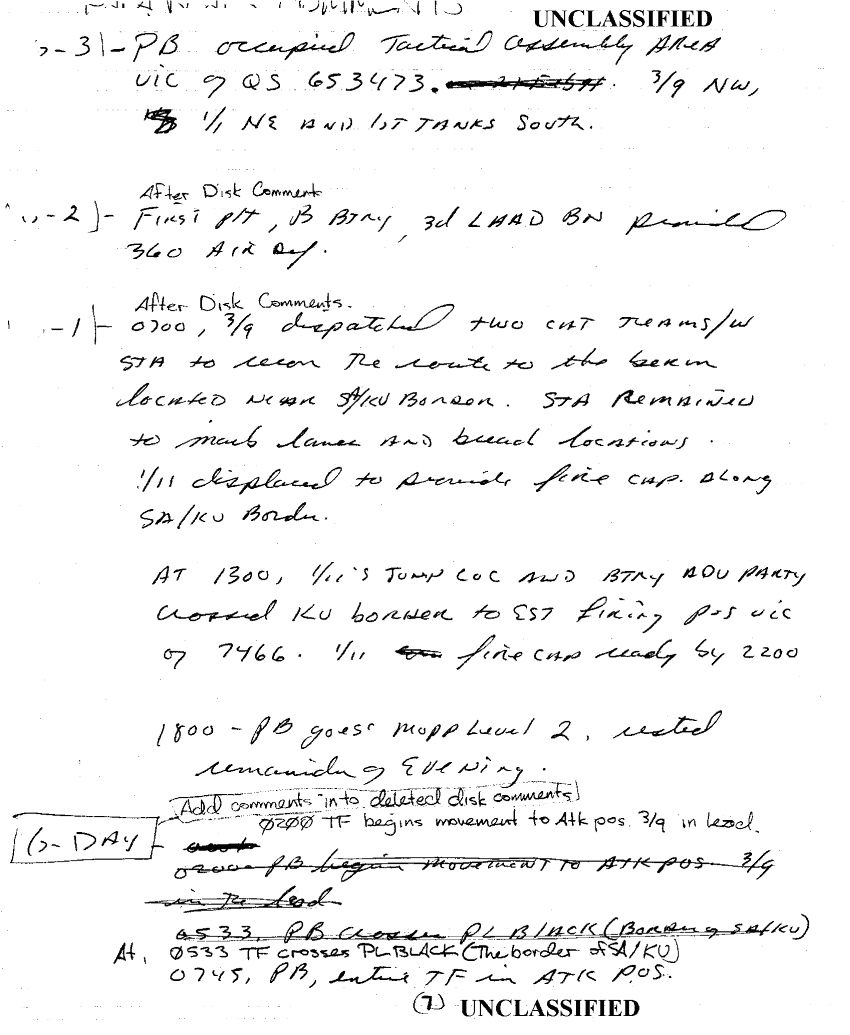 UNCLASSIFIED
-3)- PB occupied Tactical Assembly AREA
vic of QS 653473. 3/9 NW,
1/1 NE AND 1ST TANKS South.
After Disk Comment
-2)- First plt, B Btry, 3d LAAD BN provided
360 AIR Def.
After Disk Comments.
-1)- 0700, 3/9 dispatched two CAT TEAMS/W
STA to recon The route to the berm
located near SA/KU Border. STA Remained
to mark lanes AND breach locations.
1/11 displaced to provide fire cap. Along
SA/KU Border.
AT 1300, 1/11's JUMP COC AND BTRY ADV PARTY
crossed KU border to EST firing pos vic
of 7466. 1/11 fire cap ready by 2200
1800 - PB goes mopp Level 2, rested
remainder of EVENING.
Add comments into deleted disk comments
0200 TF begins movement to Atk pos. 3/9 in lead.
G-DAY
0200 PB begin movement to ATK POS 3/9
in The lead
0533, PB crosses PL BLACK (Border of SA/KU)
At, 0533 TF crosses PL BLACK (The border of SA/KU)
0745, PB, entire TF in ATK POS.
(7) UNCLASSIFIED